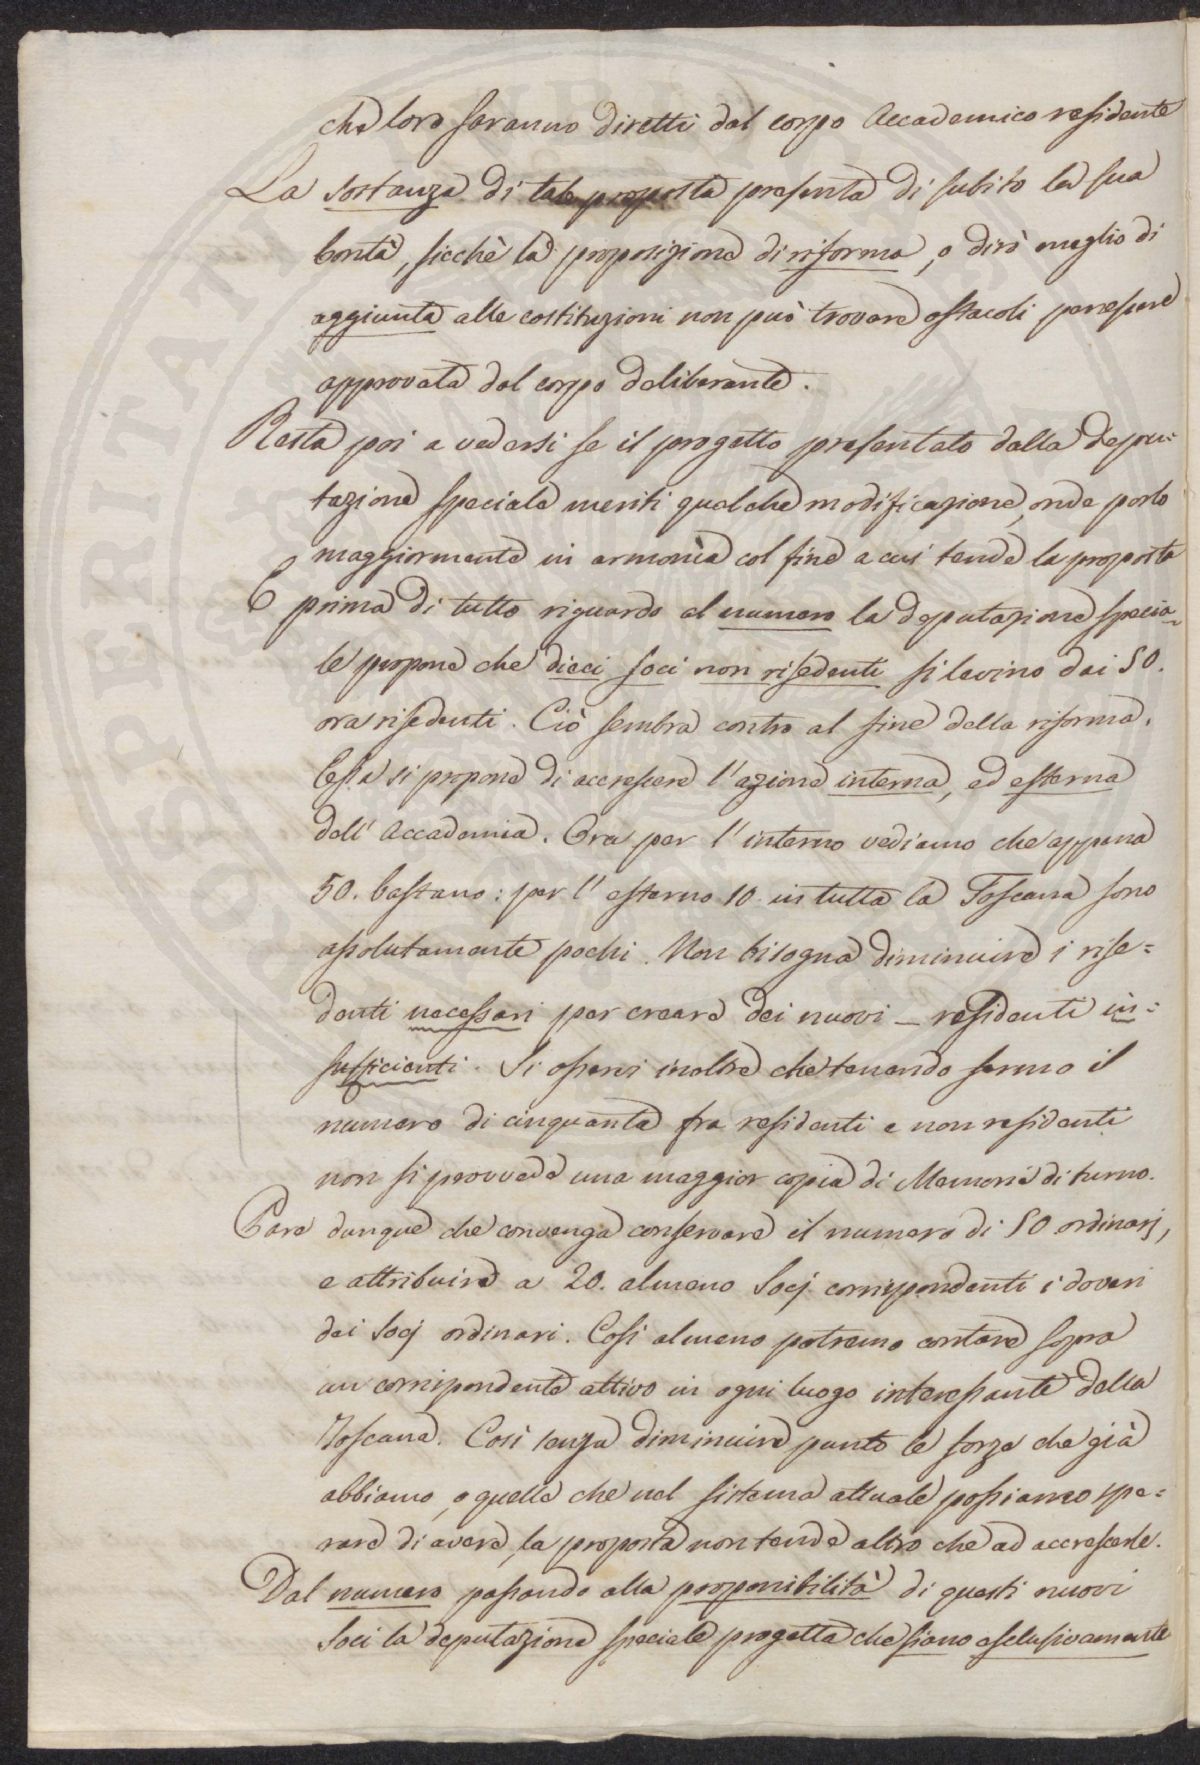 che loro saranno diretti dal corpo Accademico residente
La sostanza di tale proposta presenta di subito la sua
bontà, sicchè la proposizione di riforma, o dirò meglio di
aggiunta alle costituzioni non può trovare ostacoli per essere
approvata dal corpo deliberante.
Resta poi a vedersi se il progetto presentato dalla depu=
tazione speciale meriti qualche modificazione, onde porlo
maggiormente in armonìa col fine a cui tende la proposta
E prima di tutto riguardo al numero la deputazione specia=
le propone che dieci soci non risedenti si levino dai 50.
ora risedenti. Ciò sembra contro al fine della riforma.
Essa si propone di accrescere l'azione interna, ed esterna
dell'Accademia. Ora per l'interno vediamo che appena
50. bastano: per l'esterno 10. in tutta la Toscana sono
assolutamente pochi. Non bisogna diminuire i rise=
denti necessari per creare dei nuovi — residenti in=
sufficienti. Si osservi inoltre che tenendo fermo il
numero di cinquanta fra residenti e non residenti
non si provvede una maggior copia di Memorie di turno.
Pare dunque che convenga conservare il numero di 50 ordinarj,
e attribuire a 20. almeno Socj corrispondenti i doveri
dei Socj ordinari. Così almeno potremo contare sopra
un corrispondente attivo in ogni luogo interessante della
Toscana. Così senza diminuire punto le forze che già
abbiamo, o quelle che nel sistema attuale possiamo spe=
rare di avere, la proposta non tende altro che ad accrescerle.
Dal numero passando alla proponibilità di questi nuovi
Soci la deputazione speciale progetta che siano esclusivamente
OPERITATI PUBLICAE